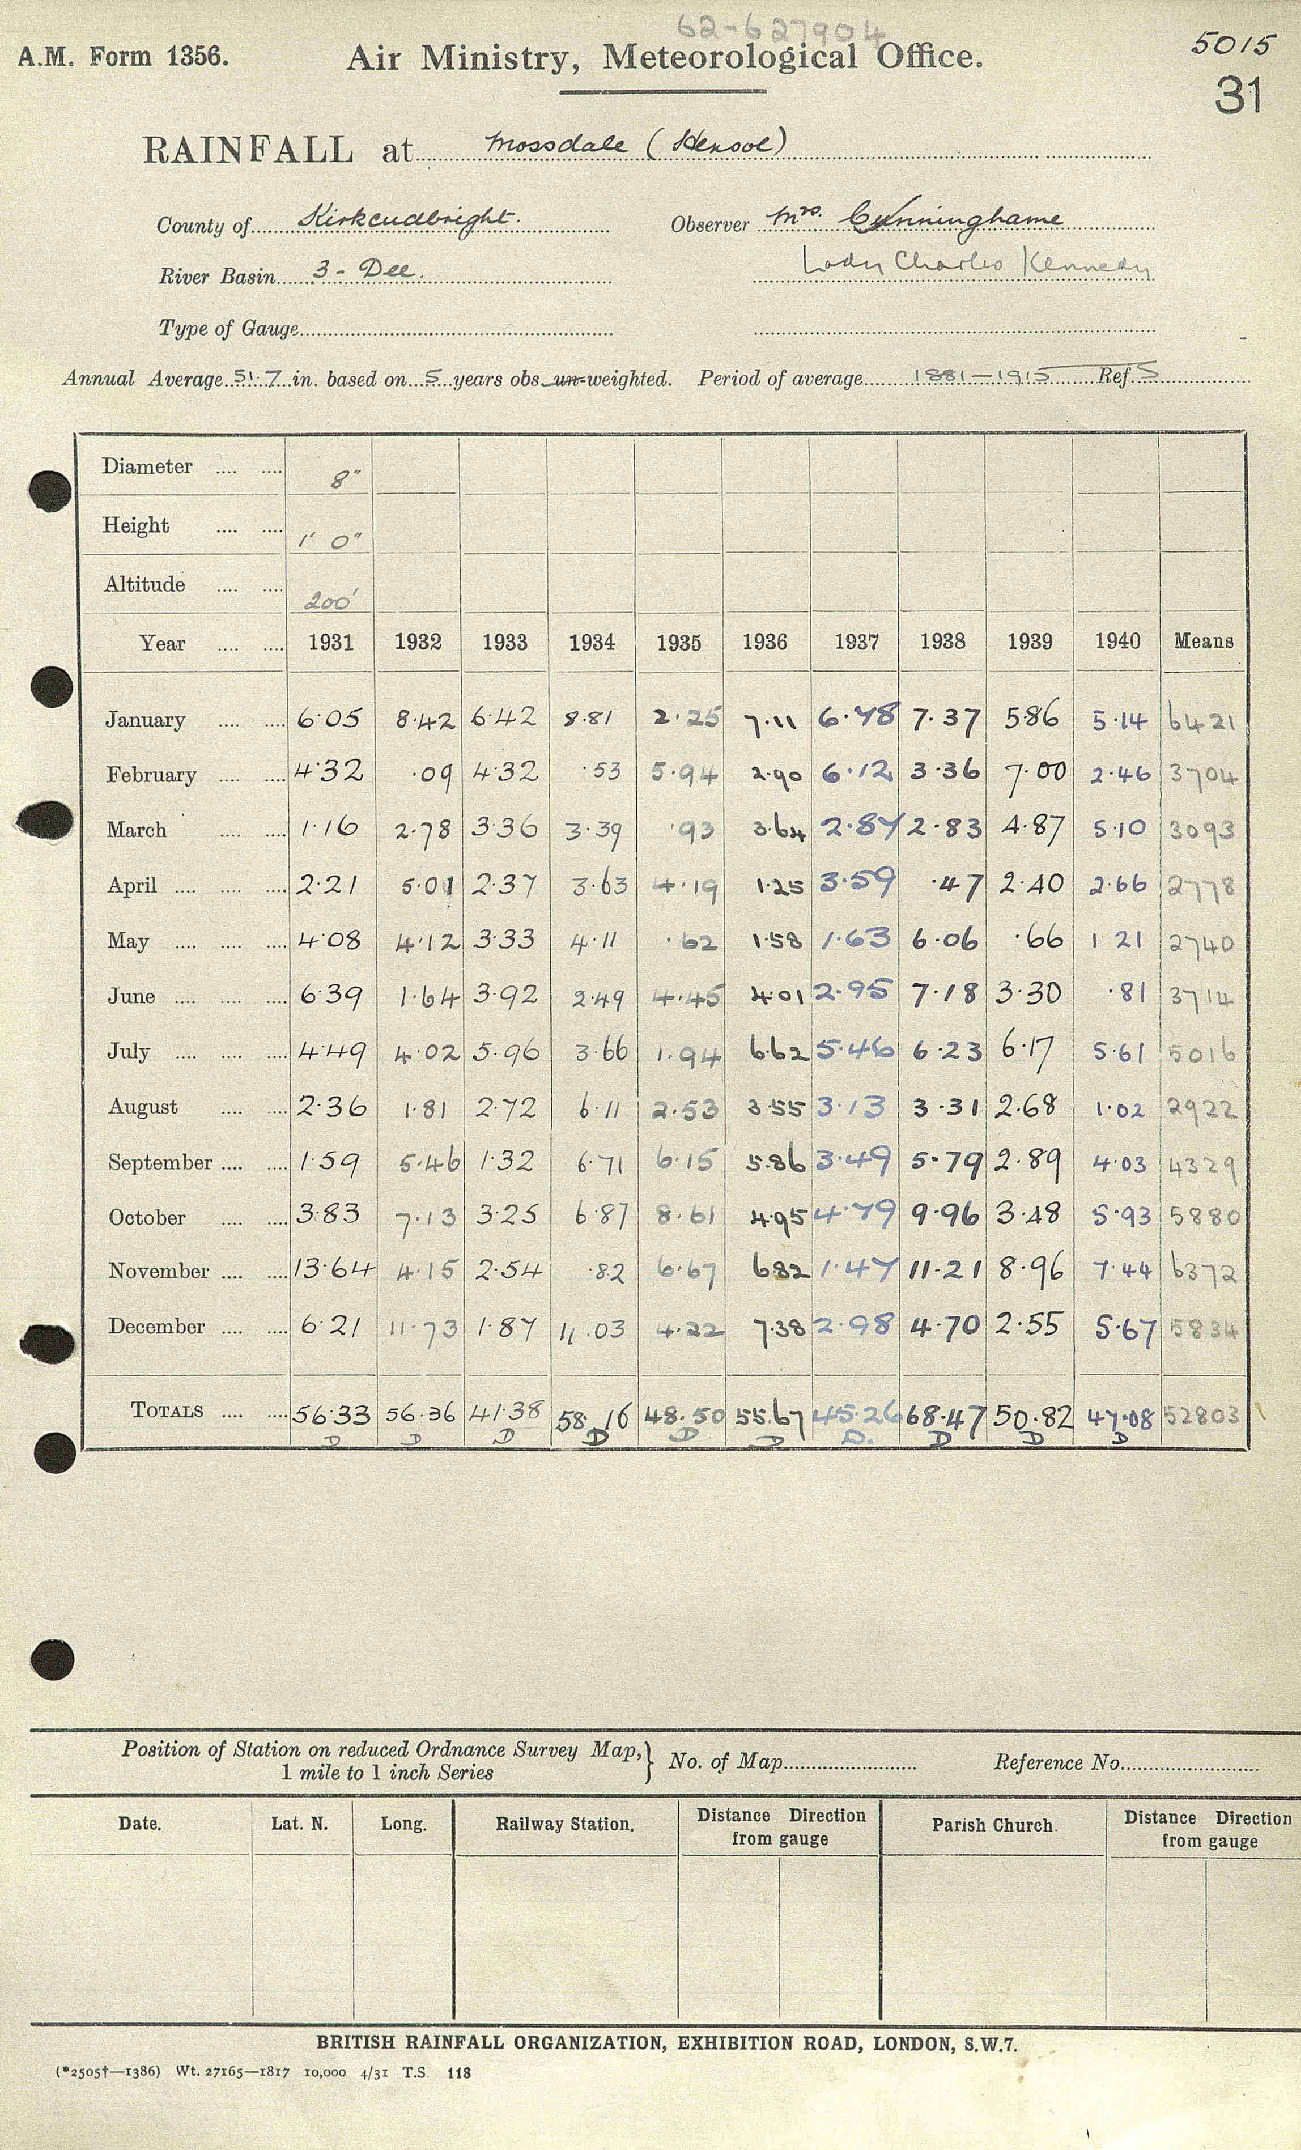 62-627904
A.M. Form 1356. Air Ministry, Meteorological Office. 5015
31
RAINFALL at Mossdale (Hensol)
County of Kirkcudbright. Observer Mrs. Cunninghame
River Basin 3 - Dee. Lady Charles Kennedy
Type of Gauge
Annual Average 51.7 in. based on 5 years obs. un-weighted. Period of average 1881-1915 Ref. S
Diameter .... .... 8"
Height .... .... 1' 0"
Altitude .... .... 200'
Year .... .... 1931 1932 1933 1934 1935 1936 1937 1938 1939 1940 Means
January .... .... 6.05 8.42 6.42 8.81 2.25 7.11 6.78 7.37 5.86 5.14 6421
February .... .... 4.32 .09 4.32 .53 5.94 2.90 6.12 3.36 7.00 2.46 3704
March .... .... 1.16 2.78 3.36 3.39 .93 3.64 2.87 2.83 4.87 5.10 3093
April .... .... .... 2.21 5.01 2.37 3.63 4.19 1.25 3.59 .47 2.40 2.66 2778
May .... .... .... 4.08 4.12 3.33 4.11 .62 1.58 1.63 6.06 .66 1 21 2740
June .... .... .... 6.39 1.64 3.92 2.49 4.45 4.01 2.95 7.18 3.30 .81 3714
July .... .... .... 4.49 4.02 5.96 3.66 1.94 6.62 5.46 6.23 6.17 5.61 5016
August .... .... 2.36 1.81 2.72 6.11 2.53 3.55 3.13 3.31 2.68 1.02 2922
September .... .... 1.59 5.46 1.32 6.71 6.15 5.86 3.49 5.79 2.89 4.03 4329
October .... .... 3.83 7.13 3.25 6.87 8.61 4.95 4.79 9.96 3.48 5.93 5880
November .... .... 13.64 4.15 2.54 .82 6.67 6.82 1.47 11.21 8.96 7.44 6372
December .... .... 6.21 11.73 1.87 11.03 4.22 7.38 2.98 4.70 2.55 5.67 5834
TOTALS .... .... 56.33 56.36 41.38 58.16 48.50 55.67 45.26 68.47 50.82 47.08 52803
D D D D D D D. D D D
Position of Station on reduced Ordnance Survey Map, } No. of Map Reference No.
1 mile to 1 inch Series
Date. Lat. N. Long. Railway Station. Distance Direction from gauge Parish Church. Distance Direction from gauge
BRITISH RAINFALL ORGANIZATION, EXHIBITION ROAD, LONDON, S.W.7.
(*2505†—1386) Wt. 27165—1817 10,000 4/31 T.S. 118